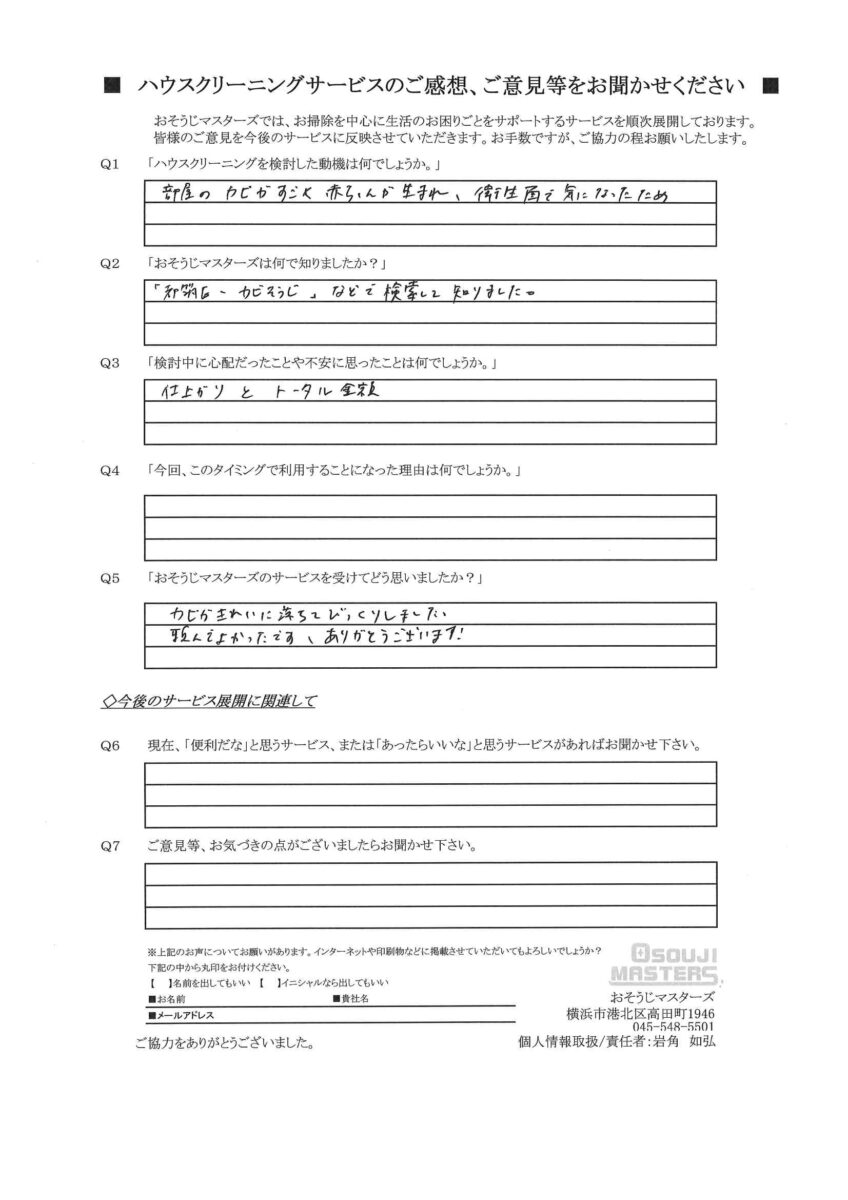 ■ ハウスクリーニングサービスのご感想、ご意見等をお聞かせください ■
おそうじマスターズでは、お掃除を中心に生活のお困りごとをサポートするサービスを順次展開しております。
皆様のご意見を今後のサービスに反映させていただきます。お手数ですが、ご協力の程お願いしたします。
Q1 「ハウスクリーニングを検討した動機は何でしょうか。」
部屋の カビがすごく 赤ちゃんが 生まれ、衛生面で 気になったため
Q2 「おそうじマスターズは何で知りましたか？」
「都筑区 - カビそうじ」などで 検索して 知りました。
Q3 「検討中に心配だったことや不安に思ったことは何でしょうか。」
仕上がり と トータル 金額
Q4 「今回、このタイミングで利用することになった理由は何でしょうか。」
Q5 「おそうじマスターズのサービスを受けてどう思いましたか？」
カビがきれいに 落ちて びっくりしました
頼んでよかったです、ありがとうございます!
◇今後のサービス展開に関連して
Q6 現在、「便利だな」と思うサービス、または「あったらいいな」と思うサービスがあればお聞かせ下さい。
Q7 ご意見等、お気づきの点がございましたらお聞かせ下さい。
※上記のお声についてお願いがあります。インターネットや印刷物などに掲載させていただいてもよろしいでしょうか？
下記の中から丸印をお付けください。
【 】名前を出してもいい 【 】イニシャルなら出してもいい
■お名前 ■貴社名
■メールアドレス
ご協力をありがとうございました。
OSOUJI
MASTERS
おそうじマスターズ
横浜市港北区高田町1946
045-548-5501
個人情報取扱/責任者:岩角 如弘